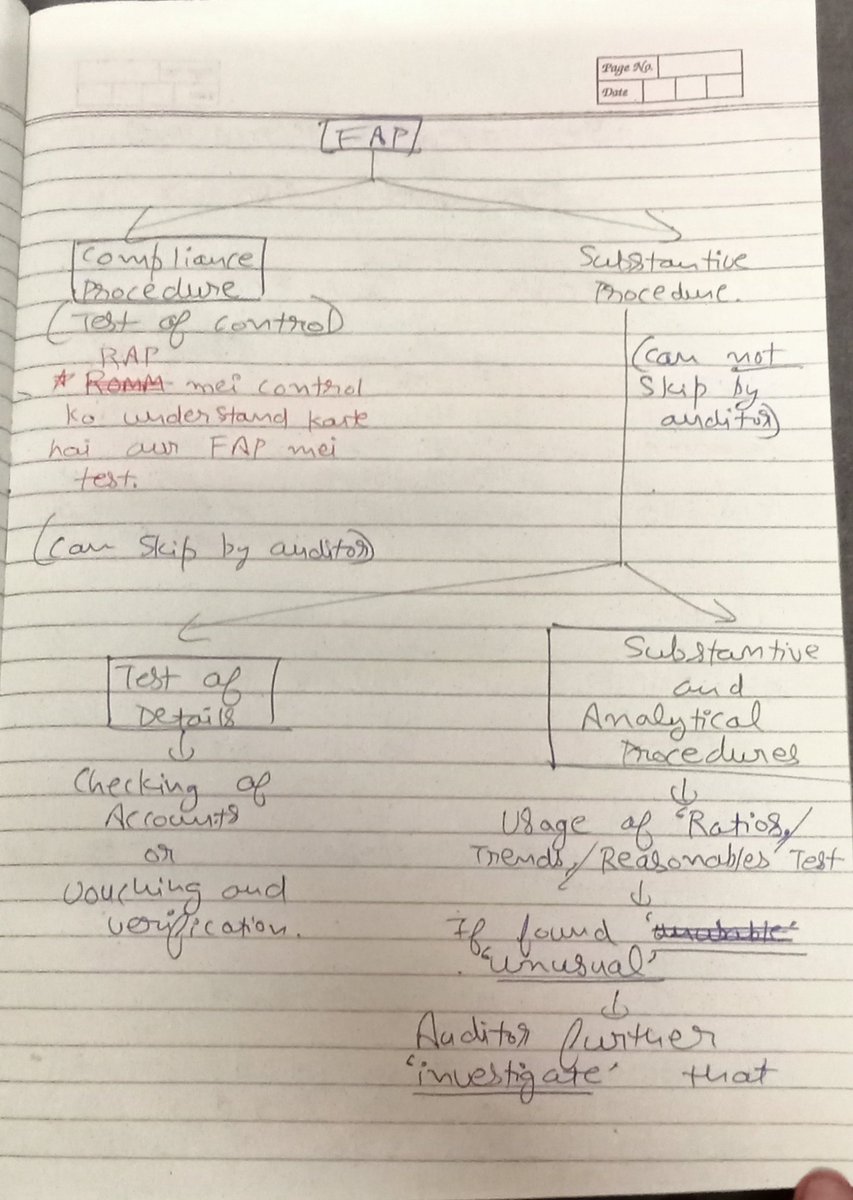 Page No.
Date
FAP
Compliance
Procedure
(Test of control)
RAP
* ROMM mei control
ko understand karte
hai aur FAP mei
test.
(can skip by auditor)
Substantive
Procedure.
(can not
skip by
auditor)
Test of
Details
Checking of
Accounts
or
Vouching and
verification.
Substantive
and
Analytical
Procedures
Usage of 'Ratios/
Trends/Reasonables' Test
If found
'unusual'
Auditor further
'investigate' that